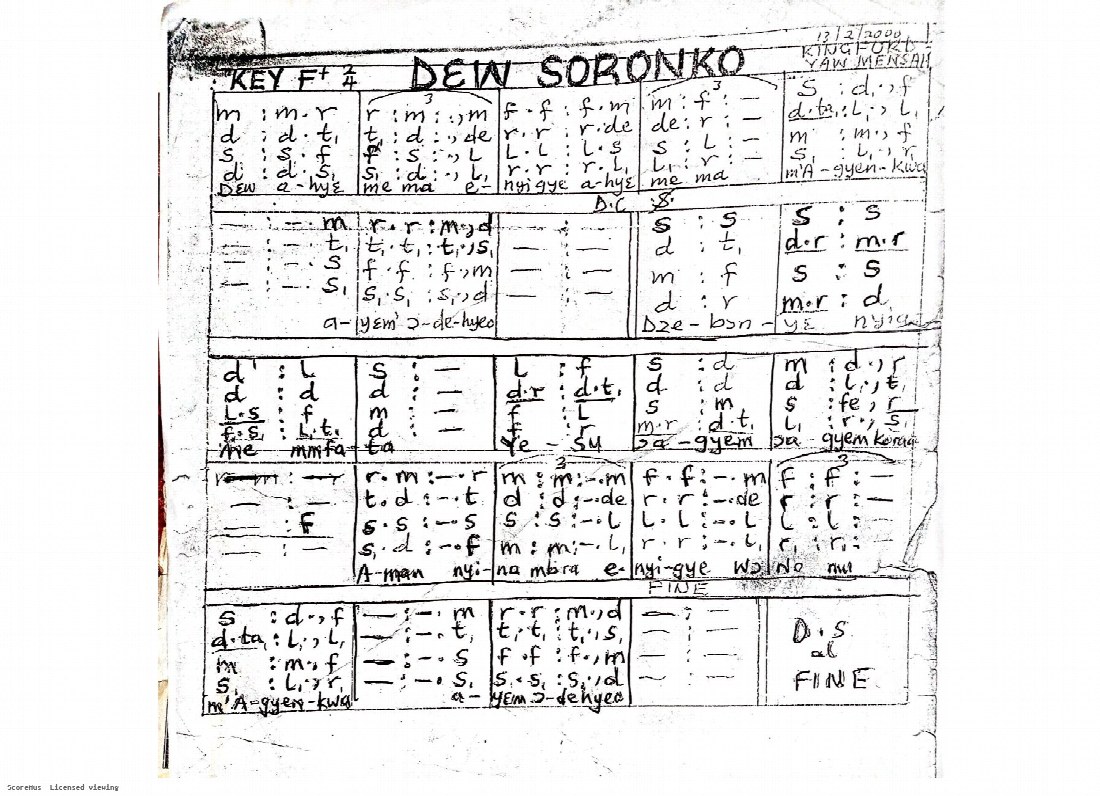 13/2/2000
KINGFORD -
YAW MENSAH
KEY F+ 2/4 DEW SORONKO
3 3
m : m.r | r : m : .,m | f.f : f.m | m : f : — | s : d.,f
d : d.t, | t, : d : ., de | r.r : r.de | de : r : — | d.ta, : L,., L,
s : s.f | f : s : ., L | L.L : L.s | s : L : — | m : m., f
d : d.s, | s, : d : ., L, | r.r : r.L, | L, : r : — | s, : L,., r
DEW a-hyɛ | me ma e- | nyigye a-hyɛ | me ma | m'A-gyen-kwa
D.C 𝄋
— : — . m | r.r : m.,d | — : — | s : s | s : s
— : — . t, | t,.t, : t,.,s, | — : — | d : t, | d.r : m.r
— : — . s | f.f : f.,m | — : — | m : f | s : s
— : — . s, | s,.s, : s,.,d | — : — | d : r | m.r : d
a- | yɛm' ɔ-de-hyeɔ | Dze-bɔn- | yɛ nyia
d' : L | s : — | L : f | s : d | m : d.,r
d : d | d : — | d.r : d.t, | d : d | d : L,., t,
L.s : f | m : — | f : L | s : m | s : fe., r
f.s, : L,.t, | d : — | f : r | m.r : d.t, | L, : r., s,
ne mmfa- | ta | Ye - su | ɔa-gyem | ɔa gyem koraa
3 3
— : — | r.m : —.r | m : m : —.m | f.f : —.m | f : f : —
— : — | t.d : —.t | d : d : —.de | r.r : —.de | r : r : —
— : F | s.s : —.s | s : s : —.L | L.L : —.L | L : L : —
— : — | s,.d : —.f | m : m : —.L, | r.r : —.L, | r, : r, : —
A-man nyi- | na mbra e- | nyi-gye Wɔ | No mu
FINE
s : d.,f | — : —. m | r.r : m.,d | — : — | D.S
d.ta, : L,., L, | — : —. t, | t,.t, : t,.,s, | — : — | al
m : m.,f | — : —. s | f.f : f.,m | — : — | FINE
s, : L,., r, | — : —. s, | s,.s, : s,.,d | — : —
m'A-gyen-kwa | a- | yɛm ɔ-dehyeɔ
Scoremus Licensed viewing